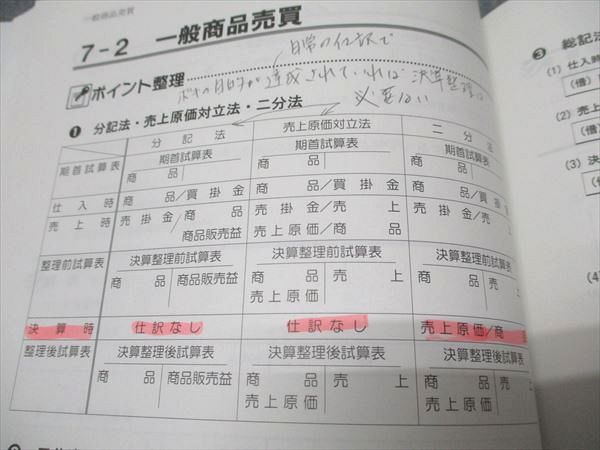 一般商品売買
7-2 一般商品売買
日常の仕訳で
ポイント整理
達成されていれば 決算整理は
必要ない
❶ 分記法・売上原価対立法・二分法
分記法 売上原価対立法 二分法
期首試算表 期首試算表 期首試算表 期首試算表
商品 商品 商品
仕入時 商品/買掛金 商品/買掛金 商品/買掛金
売上時 売掛金/商品 売掛金/売上 売掛金/売上
商品販売益 売上原価/商品
整理前試算表 決算整理前試算表 決算整理前試算表 決算整理前試算表
商品 商品販売益 商品 売上 商品 売
売上原価
決算時 仕訳なし 仕訳なし 売上原価/商
整理後試算表 決算整理後試算表 決算整理後試算表 決算整理後試算表
商品 商品販売益 商品 売上 商品 売
売上原価 売上原価
❸ 総記法
(1) 仕入時
(借)
(2) 売上
(借)
(3) 決算
(借)
(4)